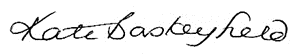 Kate Baskeyfield